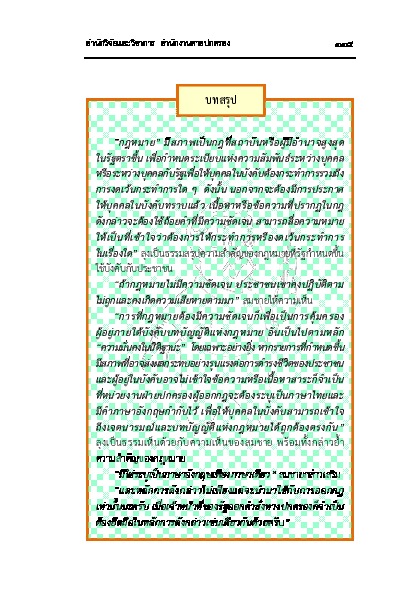 สำนักวิจัยและวิชาการ สำนักงานศาลปกครอง ๑๑๕
บทสรุป
"กฎหมาย" มีสภาพเป็นกฎที่สถาบันหรือผู้มีอำนาจสูงสุด
ในรัฐตราขึ้น เพื่อกำหนดระเบียบแห่งความสัมพันธ์ระหว่างบุคคล
หรือระหว่างบุคคลกับรัฐเพื่อให้บุคคลในบังคับต้องกระทำการรวมถึง
การงดเว้นกระทำการใด ๆ ดังนั้น นอกจากจะต้องมีการประกาศ
ให้บุคคลในบังคับทราบแล้ว เนื้อหาหรือข้อความที่ปรากฏในกฎ
ดังกล่าวจะต้องใช้ถ้อยคำที่มีความชัดเจน สามารถสื่อความหมาย
ให้เป็นที่เข้าใจว่าต้องการให้กระทำการหรืองดเว้นกระทำการ
ในเรื่องใด" ลุงเป็นธรรมสรุปความสำคัญของกฎหมายที่รัฐกำหนดขึ้น
ใช้บังคับกับประชาชน
"ถ้ากฎหมายไม่มีความชัดเจน ประชาชนเขาคงปฏิบัติตาม
ไม่ถูกและคงเกิดความเสียหายตามมา" สมชายให้ความเห็น
"การที่กฎหมายต้องมีความชัดเจนก็เพื่อเป็นการคุ้มครอง
ผู้อยู่ภายใต้บังคับบทบัญญัติแห่งกฎหมาย อันเป็นไปตามหลัก
"ความมั่นคงในนิติฐานะ" โดยเฉพาะอย่างยิ่ง หากรายการที่กำหนดขึ้น
มีสภาพที่อาจส่งผลกระทบอย่างรุนแรงต่อการดำรงชีวิตของประชาชน
และผู้อยู่ในบังคับอาจไม่เข้าใจข้อความหรือเนื้อหาสาระก็จำเป็น
ที่หน่วยงานฝ่ายปกครองผู้ออกกฎจะต้องระบุเป็นภาษาไทยและ
มีคำภาษาอังกฤษกำกับไว้ เพื่อให้บุคคลในบังคับสามารถเข้าใจ
ถึงเจตนารมณ์และบทบัญญัติแห่งกฎหมายได้ถูกต้องตรงกัน"
ลุงเป็นธรรมเห็นด้วยกับความเห็นของสมชาย พร้อมทั้งกล่าวย้ำ
ความสำคัญของกฎหมาย
"มิใช่ระบุเป็นภาษาอังกฤษเพียงภาษาเดียว" สมชายกล่าวเสริม
"และหลักการดังกล่าวไม่เพียงแต่จะนำมาใช้กับการออกกฎ
เท่านั้นนะครับ เมื่อเจ้าหน้าที่ของรัฐออกคำสั่งทางปกครองก็จำเป็น
ต้องยึดถือในหลักการดังกล่าวเช่นเดียวกันด้วยครับ"